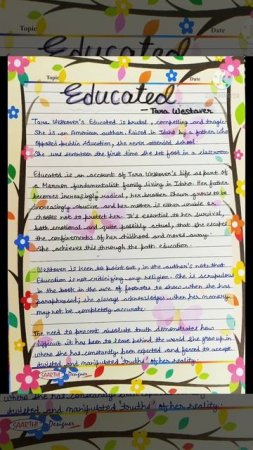 Topic
Date
Educated
Topic
Date
Educated
- Tara Westover
Tara Westover's Educated is brutal, compelling and tragic
She is an American author. Raised in Idaho by a father who
opposed public education, she never attended school.
She was seventeen the first time she set foot in a classroom
Educated is an account of Tara Westover's life as part of
a Mormon fundamentalist family living in Idaho. Her father
becomes increasingly radical, her brother Shawn grows to be
increasingly abusive and her mother is either unable or
chooses not to protect her. It's essential to her survival,
both emotional and quite possibly actual, that she escapes
the confinements of her childhood and moved away.
She achieves this through the path education.
Westover is keen to point out, in the author's note that
Education is not criticising any religion. She is scrupulous
in the book in the use of footnotes to show when she has
paraphrased; she always acknowledges when her memory
may not be completely accurate
The need to present absolute truth demonstrates how
difficult it has been to leave behind the world she grew up in
where she has constantly been expected and forced to accept
twisted and manipulated "truths" of her reality.
SAARTHI Designer
where she has constantly
twisted and manipulated "truths" of her reality.
SAARTHI Designer